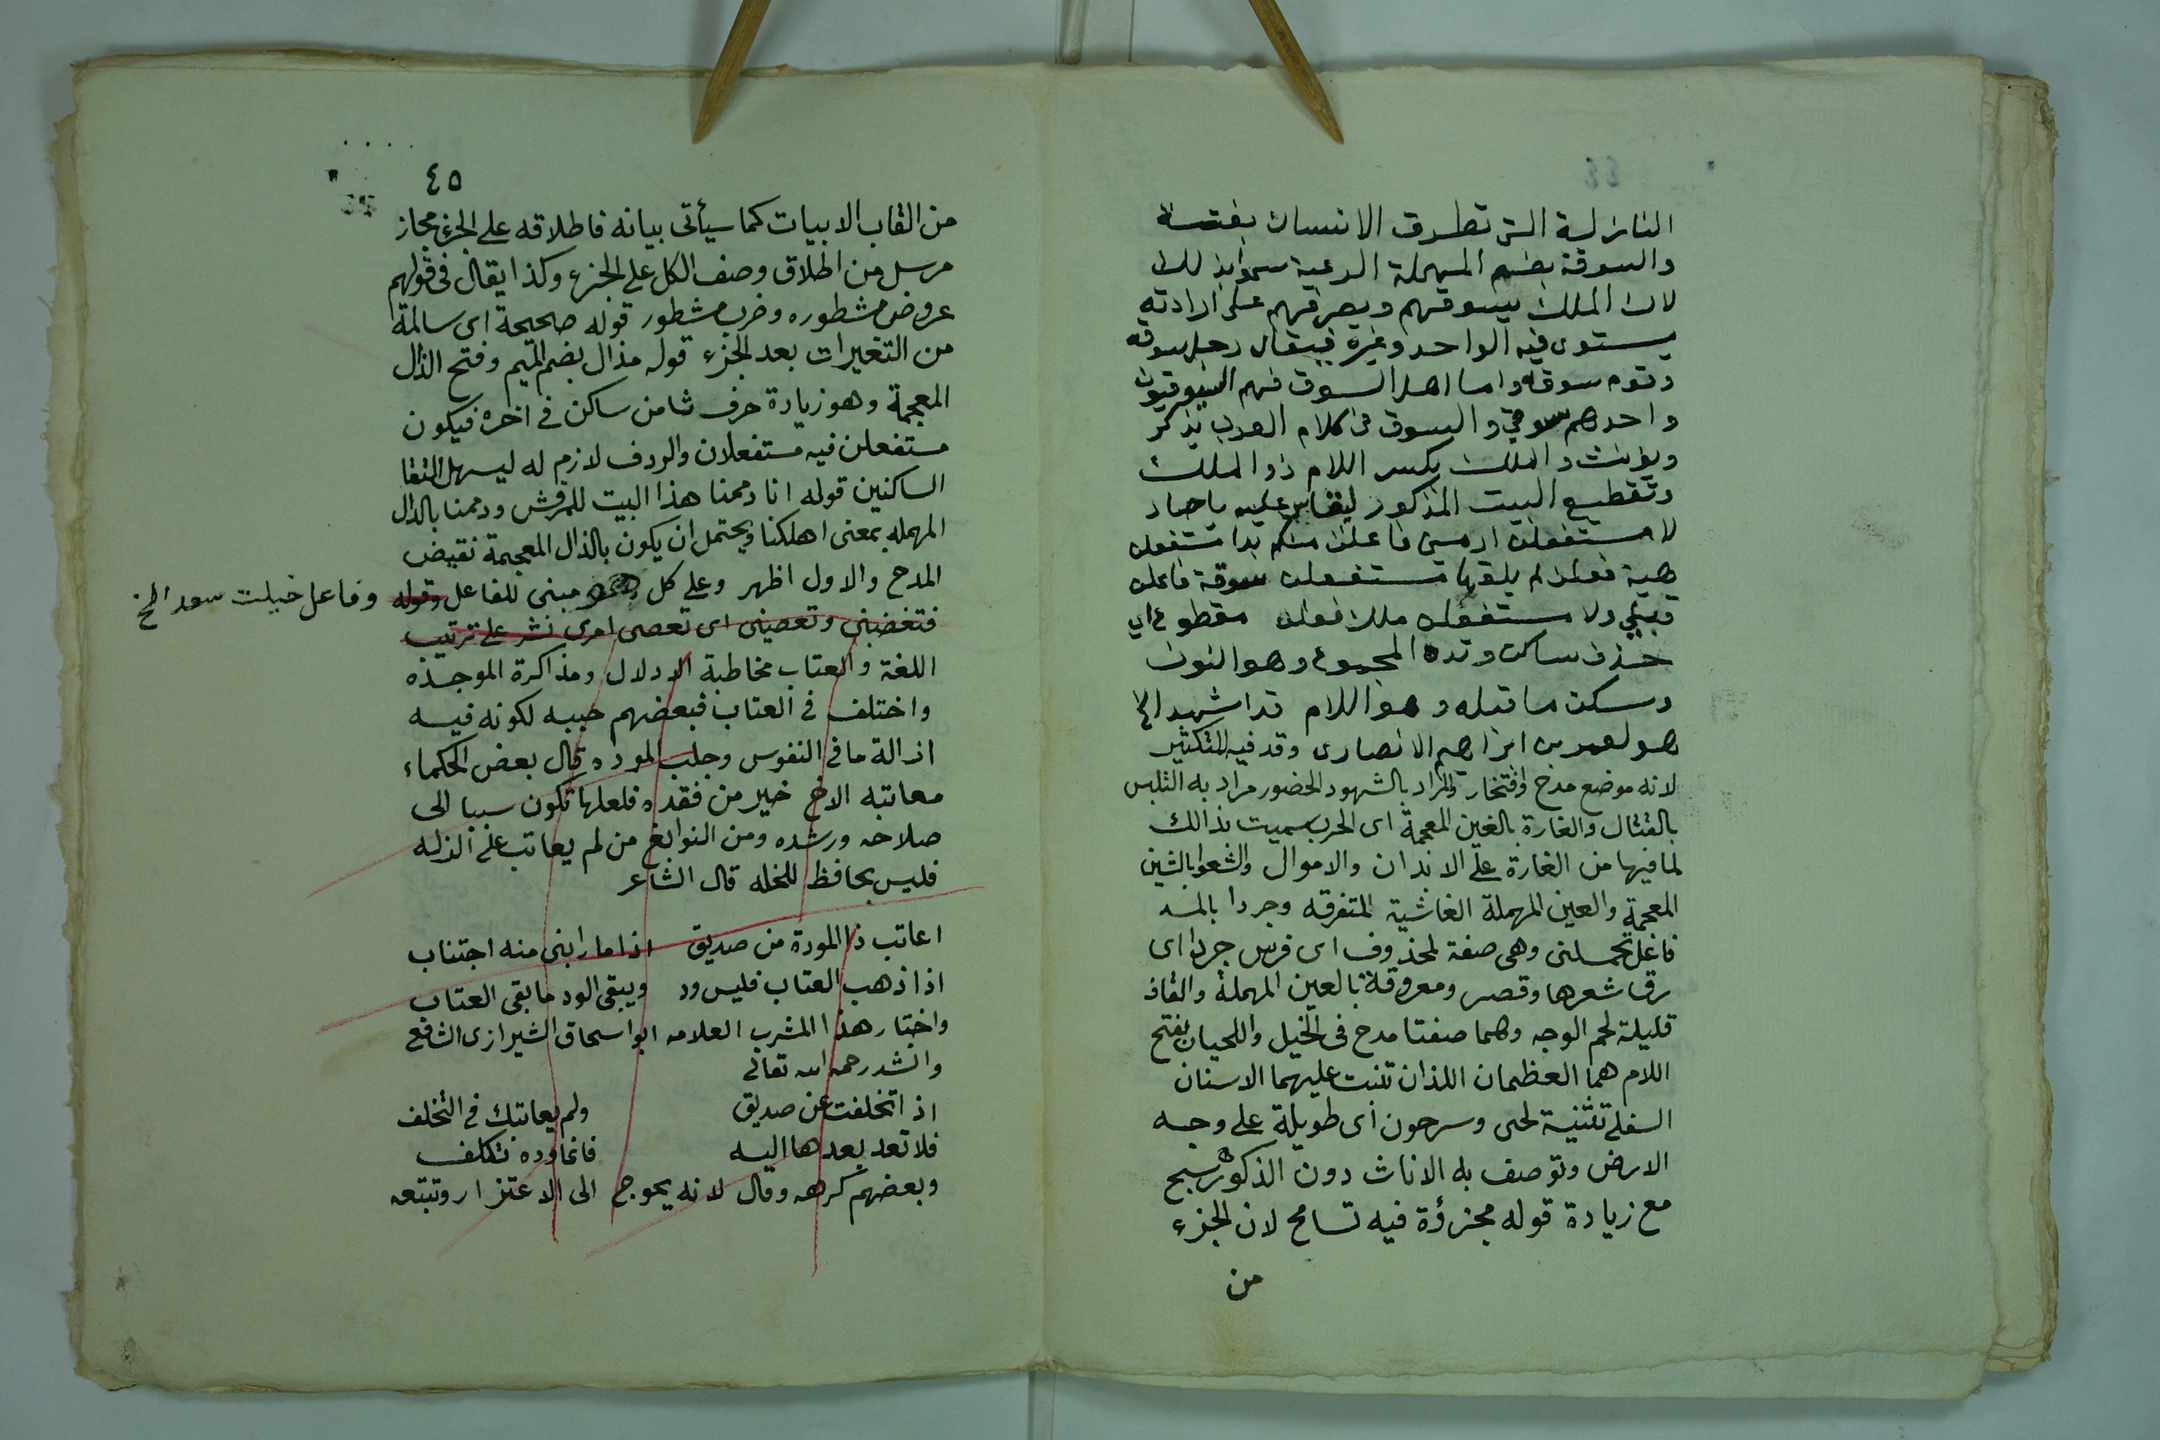 النازلة التى تطرق الانسان بغتة
والسوقة بضم المهملة الرعية سموا بذلك
لان الملك يسوقهم ويصرفهم على ارادته
يستوى فيه الواحد وغيره فيقال رجل سوقه
وقوم سوقه واما اهل السوق فهم السوقيون
واحدهم سوقي والسوق فى كلام العرب يذكر
ويؤنث والملك بكسر اللام ذو الملك
وتقطيع البيت المذكور ليقاس عليه ياحار
لا مستفعلن ارمين فاعلن منكم بدا مستفعلن
هية فعلن لم يلقها مستفعلن سوقة فاعلن
قبلي ولا مستفعلن ملك فعلن مقطوع اي
حذف ساكن وتده المجموع وهو النون
وسكن ما قبله وهو اللام قد اشهد الخ
هو لعمر بن ابراهيم الانصارى وقد فيه للتكثير
لانه موضع مدح وافتخار والمراد بالشهود الحضور مراد به التلبس
بالقتال والغارة بالغين المعجمة اى الحرب سميت بذالك
لما فيها من الغارة على الابدان والاموال والشعوا بالشين
المعجمة والعين المهملة الغاشية المتفرقه وجردا بالمد
فاعل تحملنى وهى صفة لمحذوف اى فرس جردا اى
رق شعرها وقصر ومعروقة بالعين المهملة والقاف
قليلة لحم الوجه وهما صفتا مدح فى الخيل واللحيان بفتح
اللام هما العظمان اللذان تنبت عليهما الاسنان
السفلى تثنية لحى وسرحون اى طويلة على وجه
الارض وتوصف به الاناث دون الذكور سبح
مع زيادة قوله مجزؤة فيه تسامح لان الجزء
من
٤٥
من القاب الابيات كما سيأتى بيانه فاطلاقه على الجزء مجاز
مرسل من اطلاق وصف الكل على الجزء وكذا يقال فى قولهم
عروض مشطوره وضرب مشطور قوله صحيحة اى سالمة
من التغيرات بعد الجزء قوله مذال بضم الميم وفتح الذال
المعجمة وهو زيادة حرف ثامن ساكن فى اخره فيكون
مستفعلن فيه مستفعلان والردف لازم له ليسهل التقا
الساكنين قوله انا دممنا هذا البيت للمرقش ودممنا بالدال
المهمله بمعنى اهلكنا ويحتمل ان يكون بالذال المعجمة نقيض
المدح والاول اظهر وعلى كل مبنى للفاعل وقوله وفاعل خيلت سعد الخ
فتغضبنى وتعصينى اى تعصى امرى نشر على ترتيب
اللغة والعتاب مخاطبة الادلال ومذاكرة الموجدة
واختلف فى العتاب فبعضهم حببه لكونه فيه
ازالة ما فى النفوس وجلب الموده قال بعض الحكماء
معاتبه الاخ خير من فقده فلعلها تكون سببا الى
صلاحه ورشده ومن النوابغ من لم يعاتب على الزله
فليس بحافظ للخله قال الشاعر
اعاتب ذا المودة من صديق اذا ما رابنى منه اجتناب
اذا ذهب العتاب فليس ود ويبقى الود ما بقى العتاب
واختار هذا المشرب العلامه ابو اسحاق الشيرازى الشافعى
وانشد رحمه الله تعالى
اذا تخلفت عن صديق ولم يعاتبك فى التخلف
فلا تعد بعدها اليه فانما وده تكلف
وبعضهم كرهه وقال لانه يحوج الى الاعتزار وتبتعه